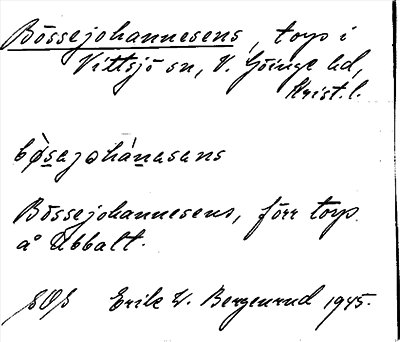 Bössejohannesens, torp i
Vittsjö sn, V. Göinge hd,
Krist. l.
bø̀sejohánesens
Bössejohannesens, förr torp
å Ubbalt.
Erik W. Bergenrud 1945.